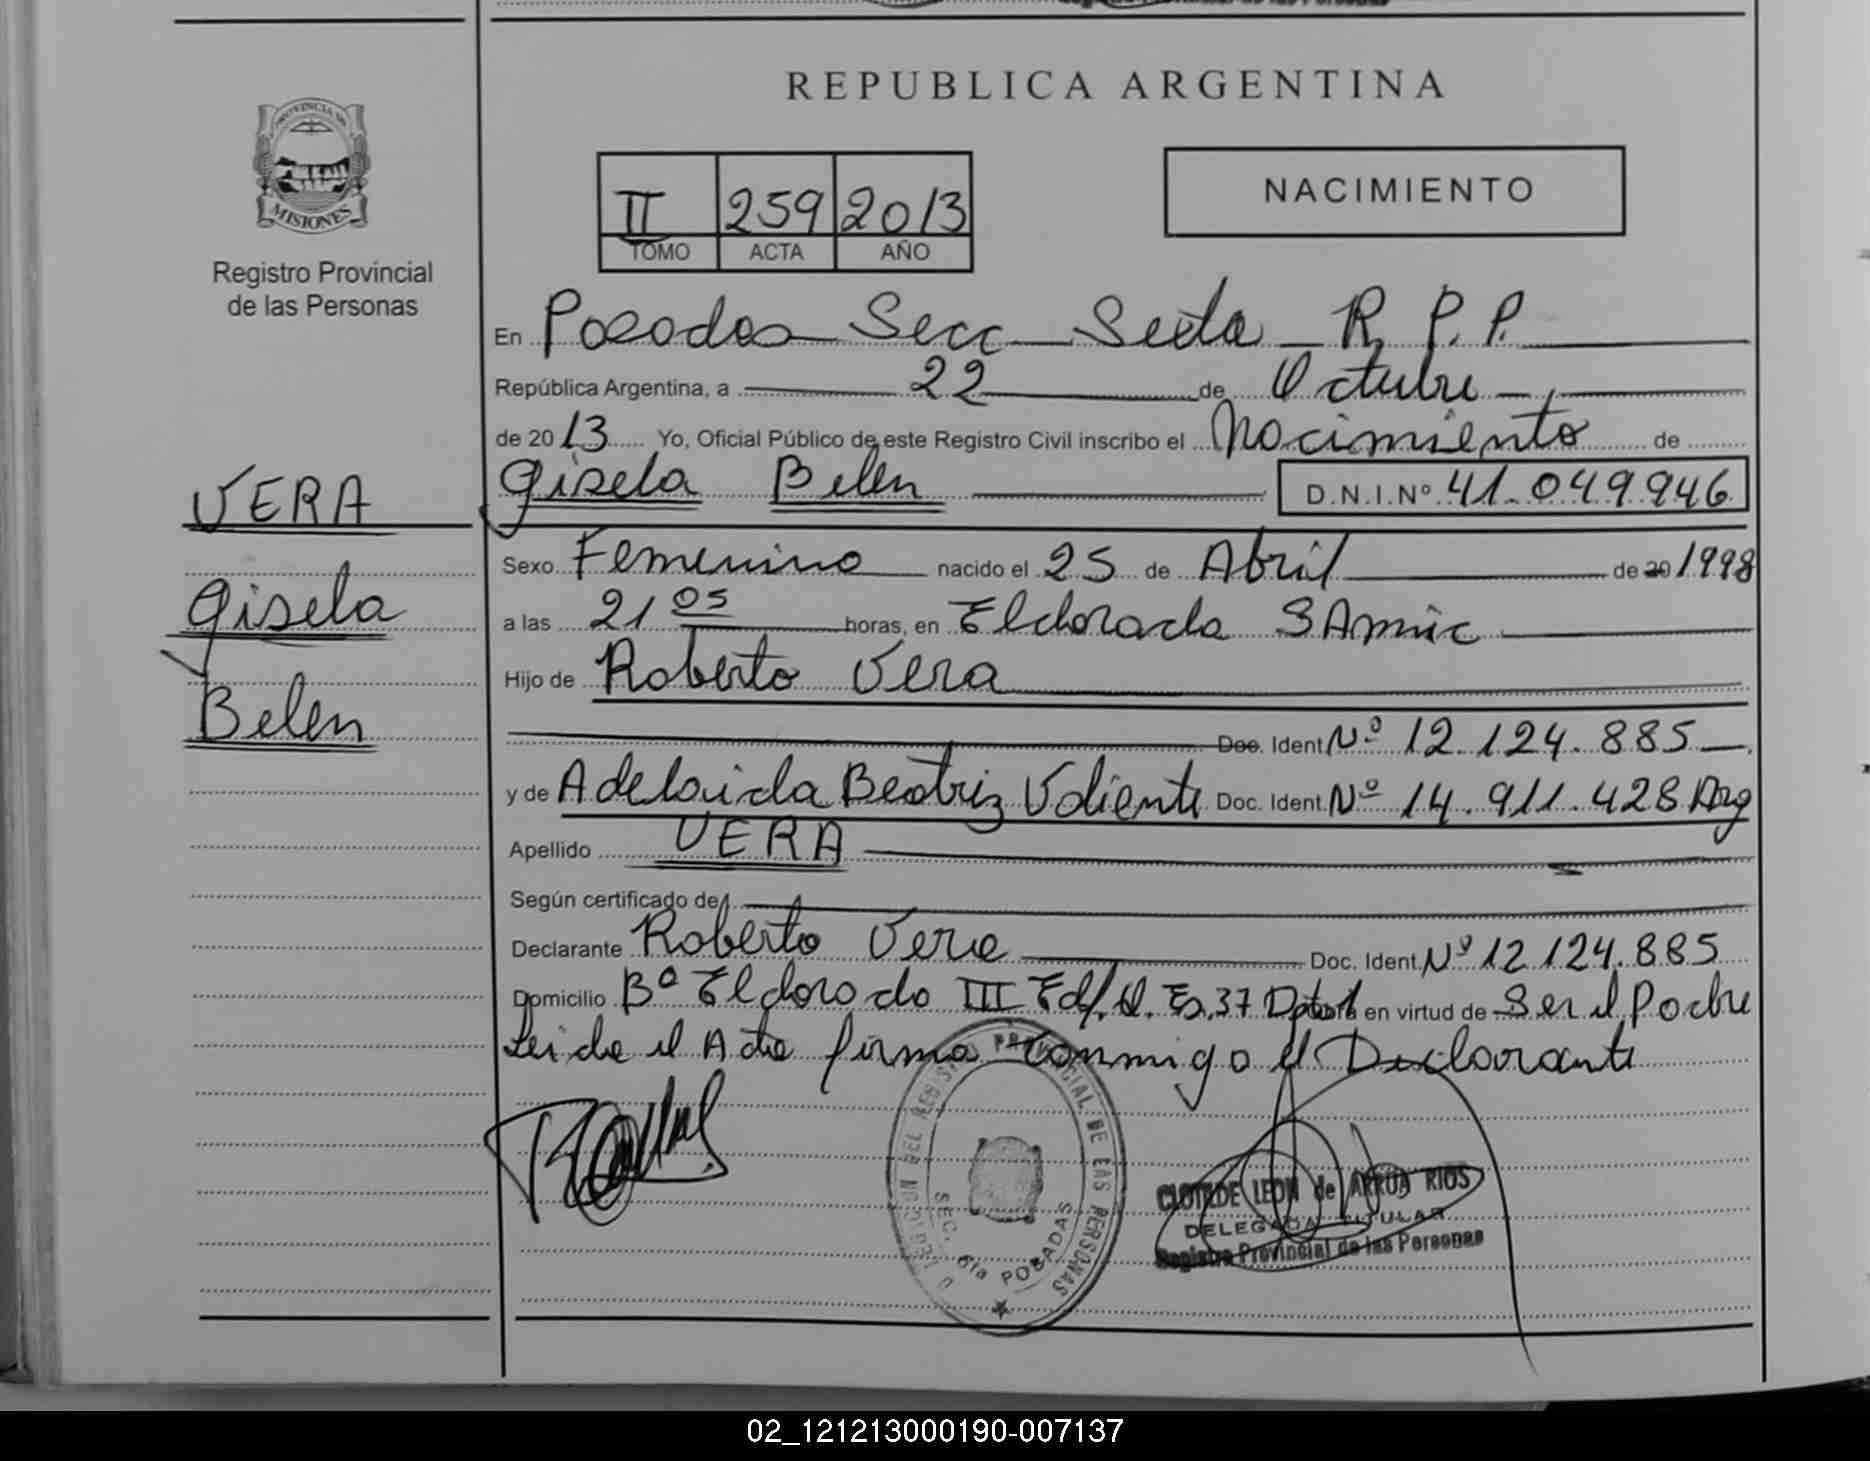 REPUBLICA ARGENTINA
PROVINCIA DE
MISIONES
Registro Provincial
de las Personas
NACIMIENTO
II 259 2013
TOMO ACTA AÑO
En Posadas Secc Sexta R. P. P.
República Argentina, a 22 de Octubre
de 2013 Yo, Oficial Público de este Registro Civil inscribo el Nacimiento de
VERA
Gisela Belen D.N.I.Nº 41.049.946
Sexo Femenino nacido el 25 de Abril de 20 1998
Gisela
a las 21 05 horas, en Eldorado SAmic
Hijo de Roberto Vera
Belen
Doc. Ident. Nº 12.124.885
y de Adelaida Beatriz Valiente Doc. Ident. Nº 14.911.428 Arg
Apellido VERA
Según certificado de
Declarante Roberto Vera Doc. Ident. Nº 12.124.885
Domicilio Bº Eldorado III Edf. Es.37 en virtud de Ser el Padre
Leida el Acta firma Conmigo el Declarante
REGISTRO PROVINCIAL DE LAS PERSONAS
SEC. 6ta POSADAS
CLOTILDE LEON de ARRUA RIOS
DELEGADA TITULAR
Registro Provincial de las Personas
02_121213000190-007137